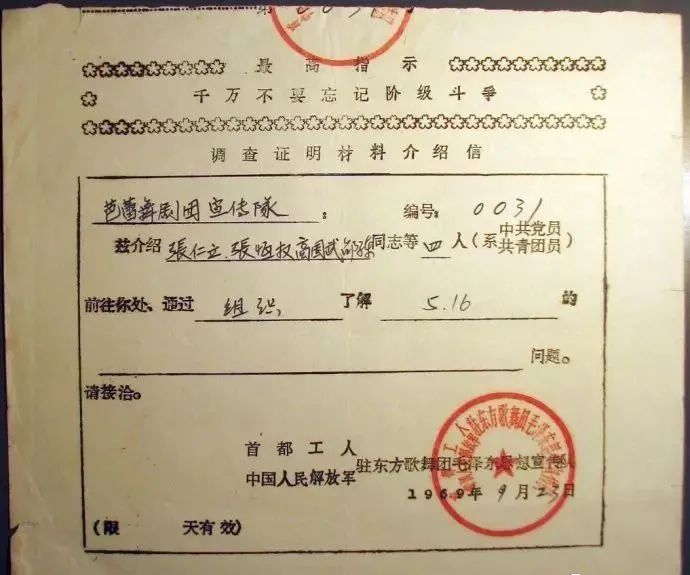 最高指示
千万不要忘记阶级斗争
调查证明材料介绍信
芭蕾舞剧团宣传隊： 编号：0031
兹介绍 張仁立、張恒权高国武 同志等 四 人（系 中共党员 共青团员）
前往你处、通过 组织 了解 5.16 的
问题。
请接洽。
首都工人
中国人民解放军 驻东方歌舞团毛泽东思想宣传队
1969年9月23日
（限 天有效）